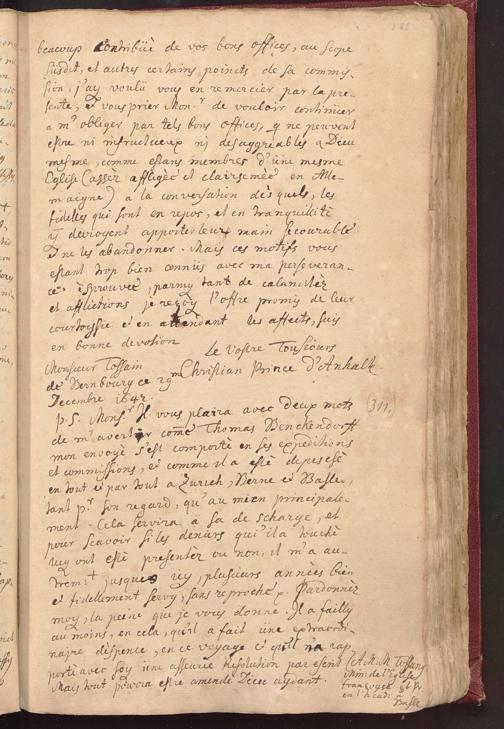 beaucoup contribüé de vos bons offices, au scope
susdit, et autres certains poincts de sa commis-
sion, j'ay voulu vous en remercier par la pre-
sente, & vous prier Mon.r de vouloir continüer
a m'obliger par tels bons offices, q ne peuvent
estre ni infructueux nj desaggreables a Dieu
mesme, comme estans membres d'une mesme
Eglise (assèz affligée et clairsemée en Alle-
maigne) a la conversation desquels, les
fidelles qui sont en repos, et en tranquilitè
y devroyent apporter leur main secourable
& ne les abandonner. Mais ces motifs vous
estant trop bien connüs avec ma perseveran-
ce esprouvée, parmy tant de calamitez
et afflictions je reçoy l'offre promis de leur
courtoysie & en attendant les effects, suis
en bonne devotion
Le Vostre Tousjours
Monsieur Tossain Christian Prince d'Anhalt.
de Bernbourg ce 29m
Decembre 1642.
P.S. Monsr Il vous plaira avec deux mots (311.)
de m'avertir come Thomas Benckendorff
mon envoyè s'est comportè en ses expeditions
et commissions, & comme il a estè depeschè
en tout & par tout a Zurich, Berne & Basle,
tant pr son regard, qu'au mien principale-
ment. Cela servira a sa descharge, et
pour scavoir si les deniers qu'il a touchè
luy ont estè presentèz ou non, il m'a au-
trem.t jusques icy, plusieurs années bien
& fidellement servy, sans reproche. Pardonnèz
moy, la peine que je vous donne. Il a failly
au moins, en cela, qu'il a fait üne extraordi-
najre despence, en ce voyage & qu'il n'a rap
portè avec soy üne asseurée resolution par escrit
Mais tout pourra estre amendè Dieu aydant.
(A M. M Tossan
Min: de l'Eglise
françoyse & Pr.
en l'Acad: a
Basle